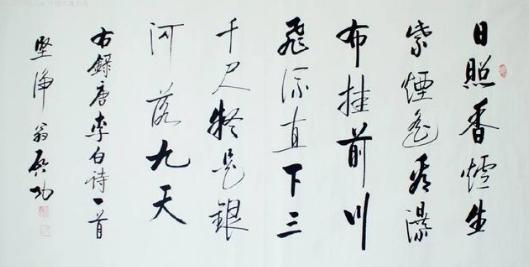 日照香爐生
紫煙遥看瀑
布挂前川
飛流直下三
千尺疑是銀
河落九天
右録唐李白诗一首
堅净翁启功